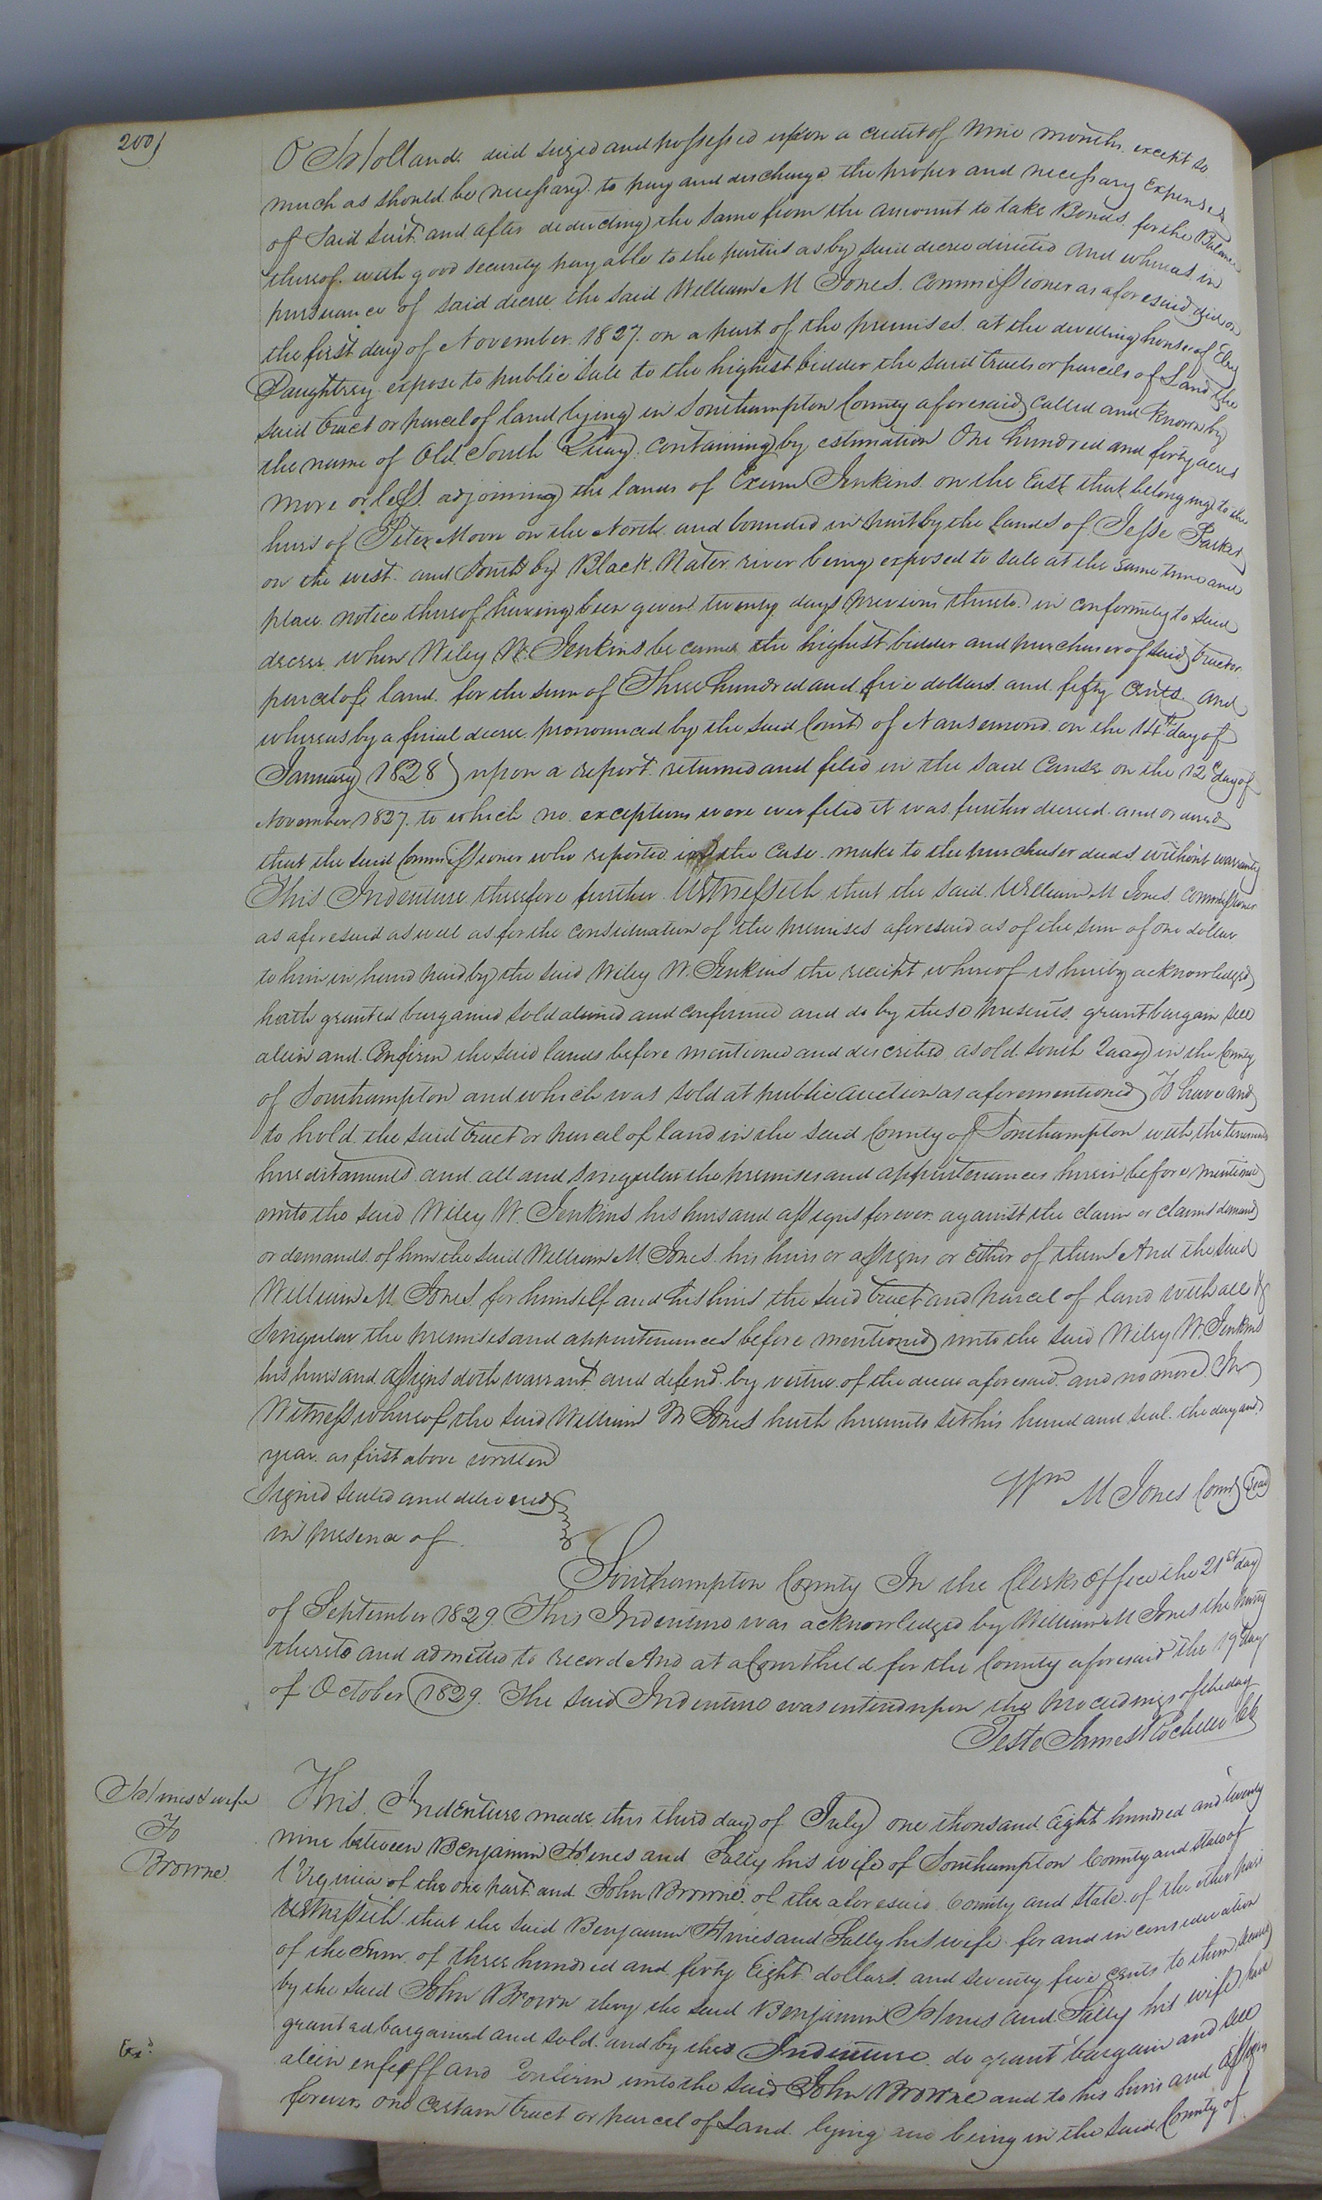 200
O Holland died seized and possessed upon a credit of nine months except so
much as should be necessary to pay and discharge the proper and necessary expenses
of said suit and after deducting the same from the amount to take Bonds for the Balance
thereof with good security payable to the parties as by said decree directed and whereas in
pursuance of said decree the said William M Jones Commissioner as aforesaid did on
the first day of November 1827 on a part of the premises at the dwelling house of Eley
Daughtrey expose to public sale to the highest bidder the said tracts or parcels of Land the
said tract or parcel of land lying in Southampton County aforesaid called and known by
the name of Old South Quay containing by estimation One hundred and forty acres
more or less adjoining the lands of Exum Jenkins on the East that belonging to the
heirs of Peter Moore on the North and bounded in part by the Lands of Jesse Parker
on the west and South by Black Water river being exposed to sale at the same time and
place notice thereof having been given twenty days previous thereto in conformity to said
decree when Wiley W. Jenkins became the highest bidder and purchaser of said tract or
parcel of land for the sum of Three hundred and five dollars and fifty cents and
whereas by a final decree pronounced by the said Court of Nansemond on the 14th day of
January 1828 upon a report returned and filed in the said Cause on the 12th day of
November 1827 to which no exceptions were ever filed it was further decreed and ordered
that the said Commissioner who reported in the case make to the purchaser deeds without warranty
This Indenture therefore further Witnesseth that the said William M Jones commissioner
as aforesaid as well as for the consideration of the premises aforesaid as of the sum of one dollar
to him in hand paid by the said Wiley W. Jenkins the receipt whereof is hereby acknowledged
hath granted bargained sold aliened and confirmed and do by these presents grant bargain sell
alien and Confirm the said lands before mentioned and described as old South Quay in the County
of Southampton and which was sold at public auction as aforementioned To have and
to hold the said tract or parcel of land in the said County of Southampton with the tenements
hereditaments and all and singular the premises and appurtenances herein before mentioned
unto the said Wiley W. Jenkins his heirs and assigns forever against the claim or claims demand
or demands of him the said William M. Jones his heirs or assigns or Either of them And the said
William M Jones for himself and his heirs the said tract and parcel of land with all &
singular the premises and appurtenances before mentioned unto the said Wiley W. Jenkins
his heirs and assigns doth warrant and defend by virtue of the decree aforesaid and no more In
Witness whereof the said William M Jones hath hereunto set his hand and seal the day and
year as first above written
Signed sealed and delivered
in presence of
Wm M Jones Comr Seal
Southampton County In the Clerks Office the 21st day
of September 1829 This Indenture was acknowledged by William M Jones the party
thereto and admitted to record And at a Court held for the County aforesaid the 19th day
of October 1829. The said Indenture was entered upon the proceedings of the day
Teste James Rochelle Clk
Hines & wife
To
Browne
This Indenture made this third day of July one thousand Eight hundred and twenty
nine between Benjamin Hines and Sally his wife of Southampton County and state of
Virginia of the one part and John Browne of the aforesaid County and State of the other part
Witnesseth that the said Benjamin Hines and Sally his wife for and in consideration
of the Sum of three hundred and forty Eight dollars and seventy five cents to them
by the said John Brown they the said Benjamin Hines and Sally his wife have
granted bargained and sold and by this Indenture do grant bargain and sell
Exd
alien enfeoff and Confirm unto the said John Browne and to his heirs and assigns
forever one certain tract or parcel of Land lying and being in the said County of